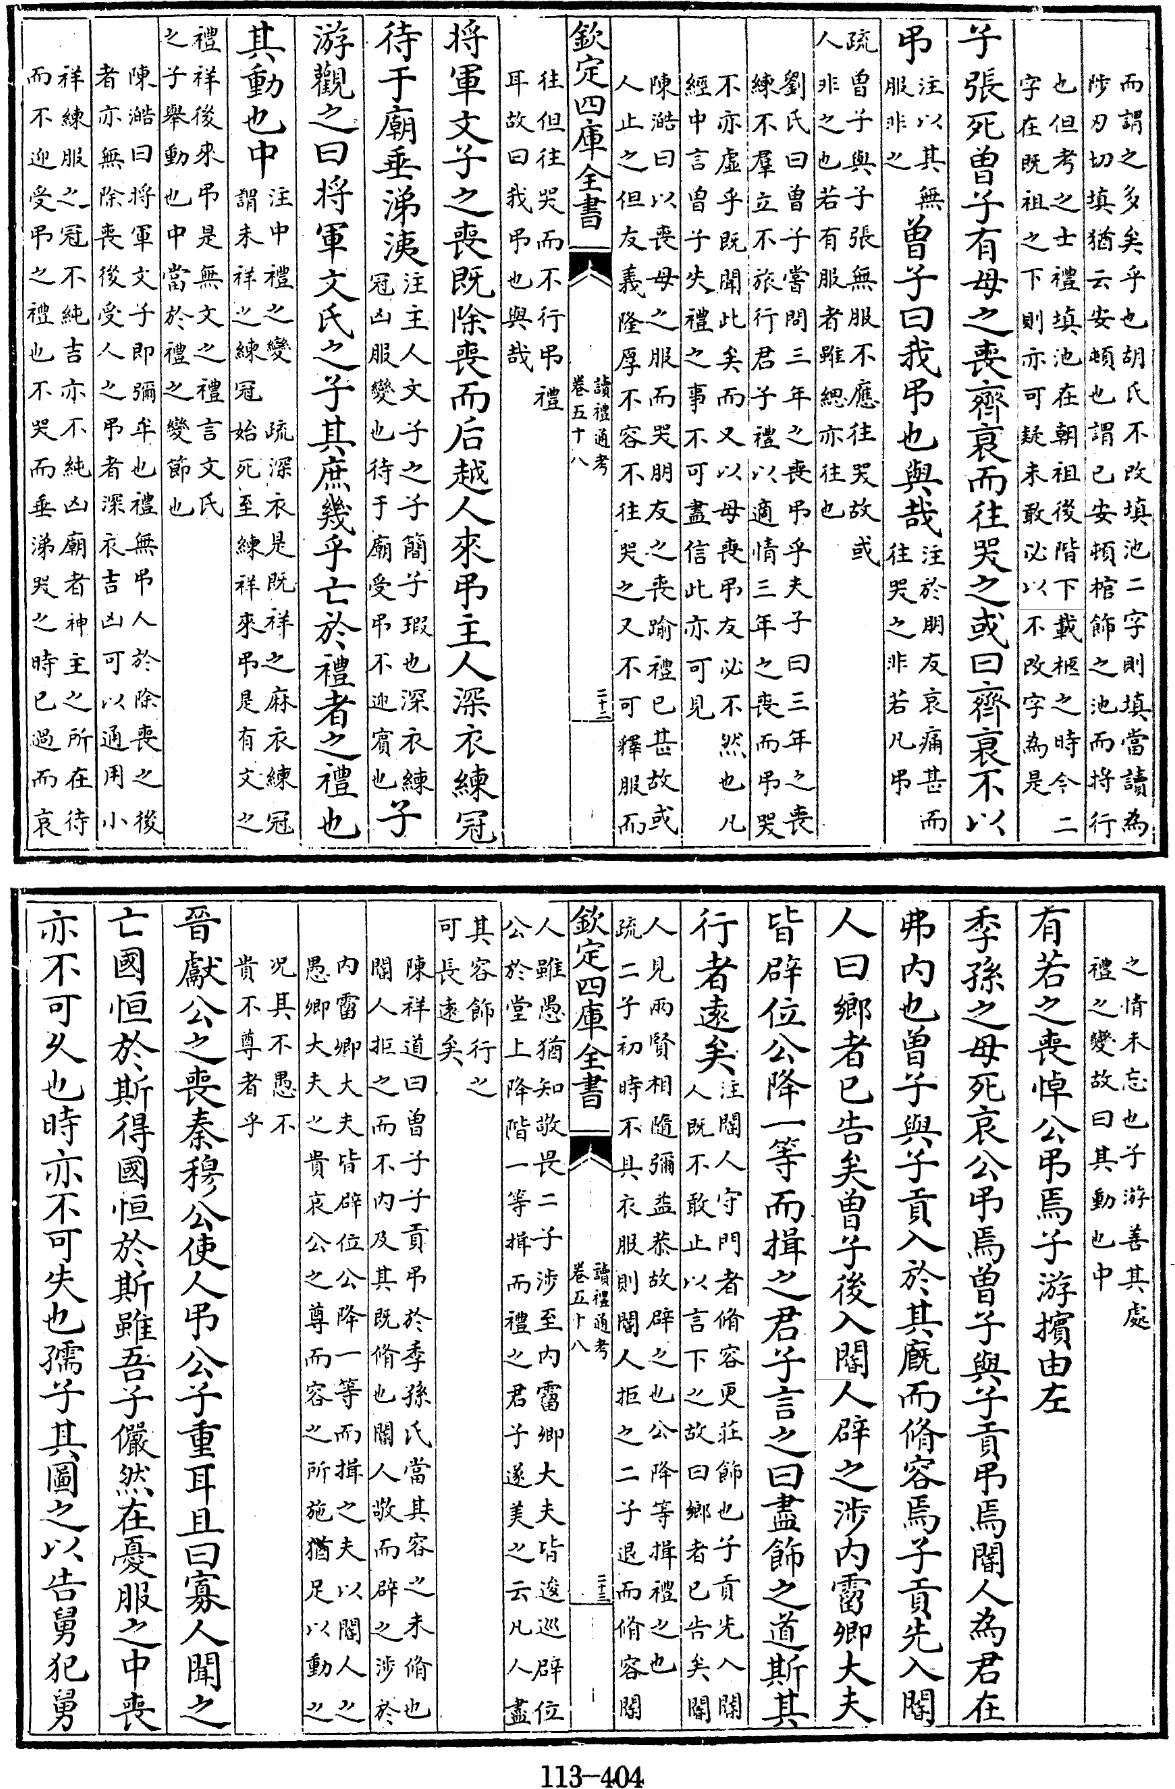 而謂之多矣乎也胡氏不改填池二字則填當讀為
陟刃切填猶云安頓也謂已安頓棺飾之池而將行
也但考之士禮填池在朝祖後階下載柩之時今二
字在既祖之下則亦可疑未敢必以不改字為是
子張死曽子有母之喪齊衰而往哭之或曰齊衰不以
弔注以其無服非之曽子曰我弔也與哉注於朋友哀痛甚而往哭之非若凡弔
疏曽子與子張無服不應往哭故或
人非之也若有服者雖緦亦往也
劉氏曰曽子嘗問三年之喪弔乎夫子曰三年之喪
練不羣立不旅行君子禮以適情三年之喪而弔哭
不亦虛乎既聞此矣而又以母喪弔友必不然也凡
經中言曽子失禮之事不可盡信此亦可見
陳澔曰以喪母之服而哭朋友之喪踰禮已甚故或
人止之但友義隆厚不容不往哭之又不可釋服而
欽定四庫全書
讀禮通考
卷五十八
二十二
往但往哭而不行弔禮
耳故曰我弔也與哉
將軍文子之喪既除喪而后越人來弔主人深衣練冠
待于廟垂涕洟注主人文子之子簡子瑕也深衣練冠凶服變也待于廟受弔不迎賓也子
游觀之曰將軍文氏之子其庶幾乎亡於禮者之禮也
其動也中注中禮之變謂未祥之練冠疏深衣是既祥之麻衣練冠始死至練祥來弔是有文之
禮祥後來弔是無文之禮言文氏
之子舉動也中當於禮之變節也
陳澔曰將軍文子即彌牟也禮無弔人於除喪之後
者亦無除喪後受人之弔者深衣吉凶可以通用小
祥練服之冠不純吉亦不純凶廟者神主之所在待
而不迎受弔之禮也不哭而垂涕哭之時已過而哀
之情未忘也子游善其處
禮之變故曰其動也中
有若之喪悼公弔焉子游擯由左
季孫之母死哀公弔焉曽子與子貢弔焉閽人為君在
弗内也曽子與子貢入於其廐而脩容焉子貢先入閽
人曰鄉者已告矣曽子後入閽人辟之涉内霤卿大夫
皆辟位公降一等而揖之君子言之曰盡飾之道斯其
行者遠矣注閽人守門者脩容更莊飾也子貢先入閽人既不敢止以言下之故曰鄉者已告矣閽
人見兩賢相隨彌益恭故辟之也公降等揖禮之也
疏二子初時不具衣服則閽人拒之二子退而脩容閽
欽定四庫全書
讀禮通考
卷五十八
二十三
人雖愚猶知敬畏二子涉至内霤卿大夫皆逡巡辟位
公於堂上降階一等揖而禮之君子遂美之云凡人盡
其容飾行之
可長遠矣
陳祥道曰曽子子貢弔於季孫氏當其容之未脩也
閽人拒之而不内及其既脩也閽人敬而辟之涉於
内霤卿大夫皆辟位公降一等而揖之夫以閽人之
愚卿大夫之貴哀公之尊而容之所施猶足以動之
况其不愚不
貴不尊者乎
晉獻公之喪秦穆公使人弔公子重耳且曰寡人聞之
亡國恒於斯得國恒於斯雖吾子儼然在憂服之中喪
亦不可久也時亦不可失也孺子其圖之以告舅犯舅
113-404